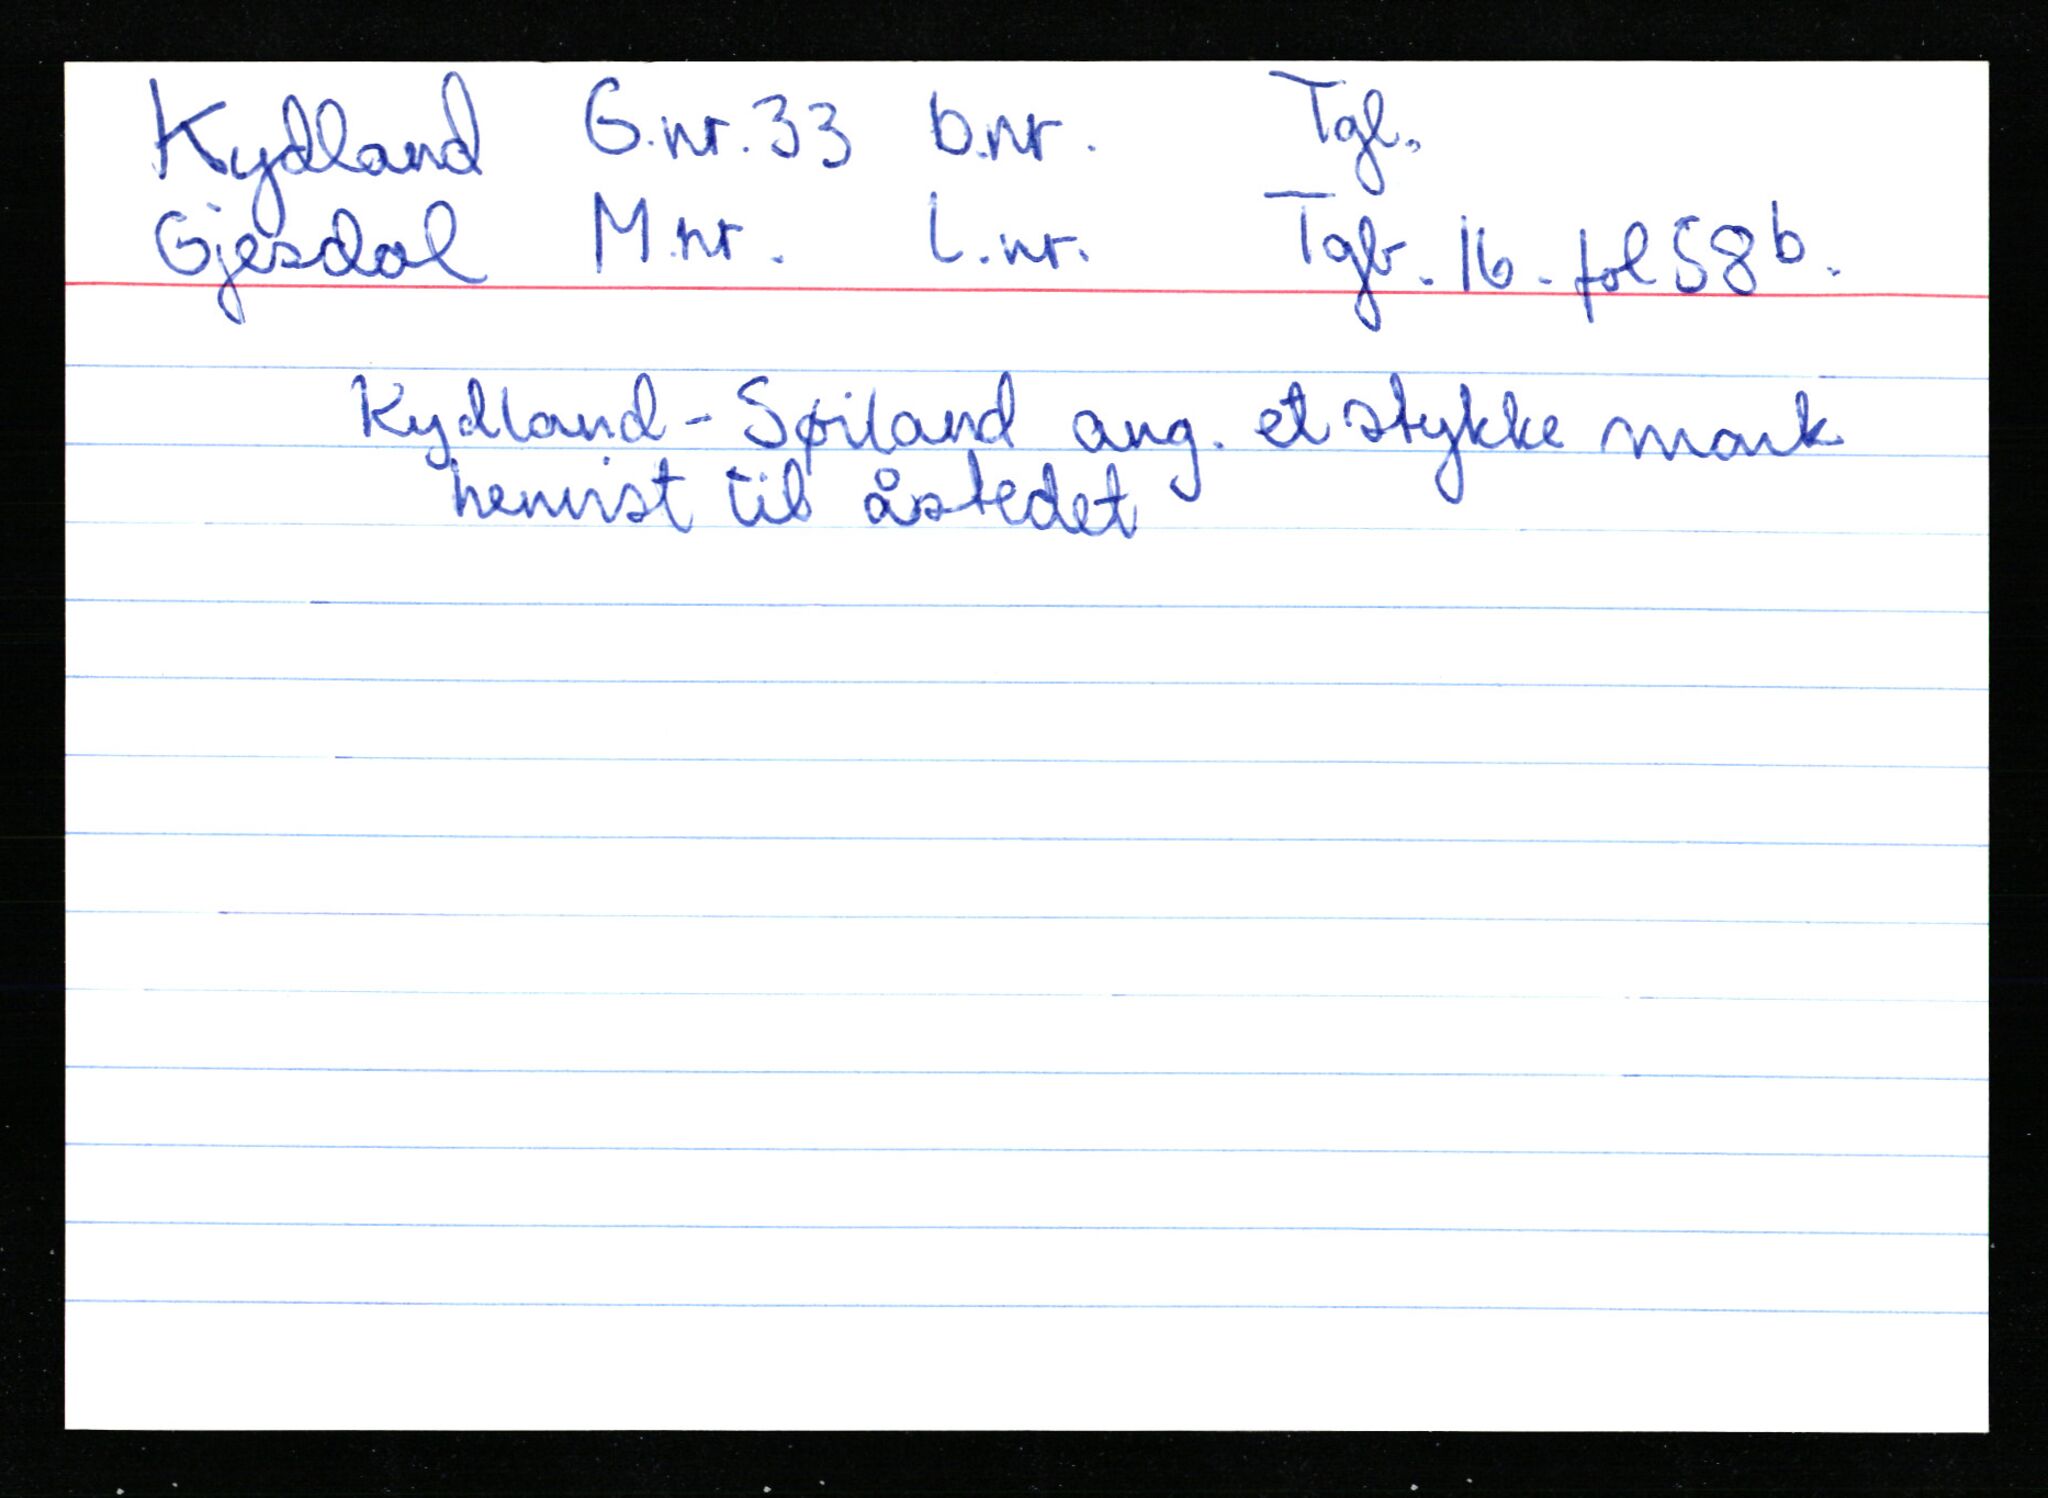 Kydland G.nr. 33 b.nr. Tgl.
Gjesdal M.nr. L.nr. Tgb. 16. fol 58b.
Kydland - Søiland ang. et stykke mark
henvist til åstedet